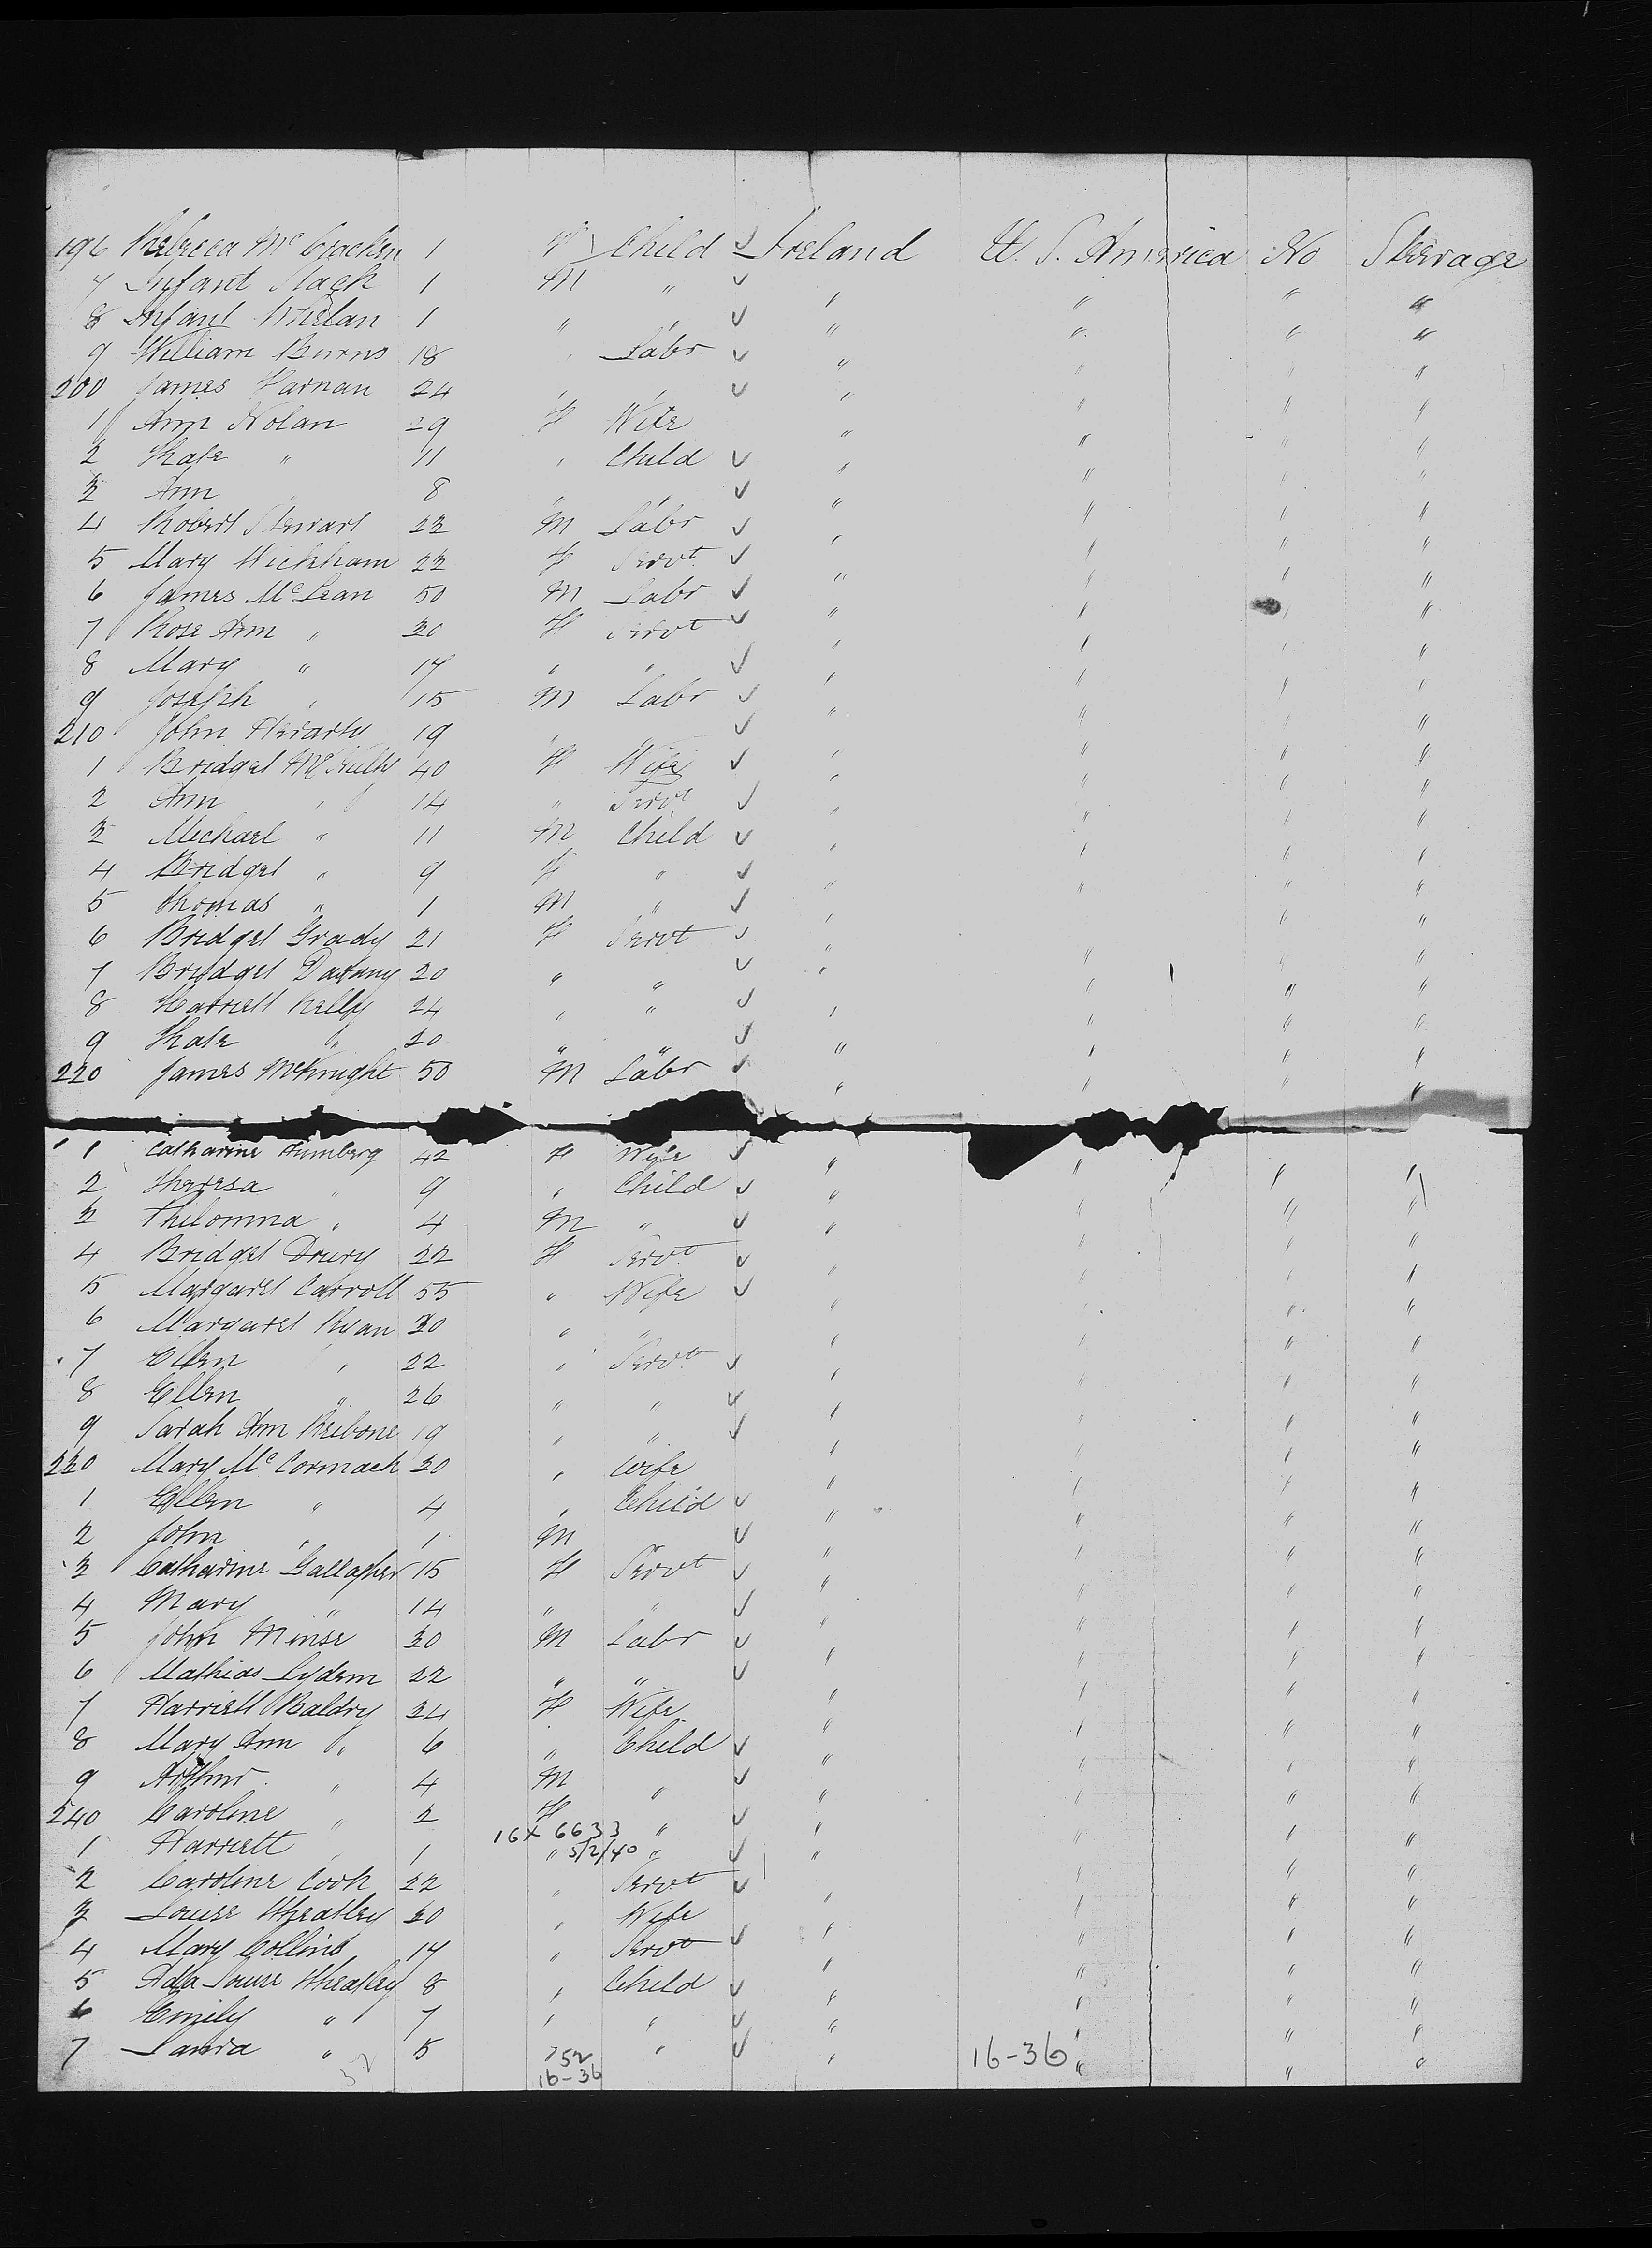 196 Rebecca McCracken 1 F Child Ireland U. S. America No Steerage
7 Infant Mack 1 M " " " " "
8 Infant Whelan 1 " " " " " "
9 William Burns 18 " Labr " " " "
200 James Harnan 24 " " " " " "
1 Ann Nolan 29 F Wife " " " "
2 Kate " 11 " Child " " " "
3 Ann " 8 " " " " " "
4 Robert Stewart 23 M Labr " " " "
5 Mary Wickham 22 F Servt " " " "
6 James McLean 50 M Labr " " " "
7 Rose Ann " 20 F Servt " " " "
8 Mary " 17 " " " " " "
9 Joseph " 15 M Labr " " " "
210 John 19 " " " " " "
1 Bridget 40 F Wife " " " "
2 Ann " 14 " Servt " " " "
3 Michael " 11 M Child " " " "
4 Bridget " 9 F " " " " "
5 Thomas " 1 M " " " " "
6 Bridget Grady 21 F Servt " " " "
7 Bridget 20 " " " " " "
8 Harriett Kelly 24 " " " " " "
9 Kate " 20 " " " " " "
220 James McKnight 50 M Labr " " " "
1 Catharine Humberg 42 F Wife " " " "
2 Theresa " 9 " Child " " " "
3 Philomina " 4 M " " " " "
4 Bridget Drury 22 F Servt " " " "
5 Margaret Carroll 55 " Wife " " " "
6 Margaret Ryan 30 " " " " " "
7 Ellen " 22 " Servt " " " "
8 Ellen " 26 " " " " " "
9 Sarah Ann 19 " " " " " "
230 Mary McCormack 30 " Wife " " " "
1 Ellen " 4 " Child " " " "
2 John " 1 M " " " " "
3 Catharine Gallagher 15 F Servt " " " "
4 Mary " 14 " " " " " "
5 John Minse 30 M Labr " " " "
6 Mathias Lydem 22 " " " " " "
7 Harriett Baldry 34 F Wife " " " "
8 Mary Ann " 6 " Child " " " "
9 Arthur " 4 M " " " " "
240 Caroline " 2 F " " " " "
16X 6633
1 Harriett " 1 " 5/2/40 " " " " "
2 Caroline Cook 22 " Servt " " " "
3 Louise Wheatley 30 " Wife " " " "
4 Mary Collins 17 " Servt " " " "
5 Ada Louise Wheatley 8 " Child " " " "
6 Emily " 7 " " " " " "
7 Laura " 5 " " " " "
752 16-36
16-36